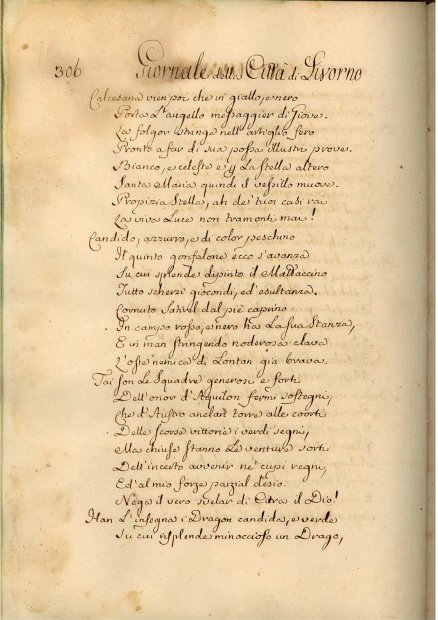 306 Giornale della Città di Livorno
Calcesana vien poi che in giallo, e nero
Porta L'augello messaggier di Giove.
La folgor stringe nell'artiglio fero
Pronto a far di sua possa illustri prove.
Bianco, e celeste e La Stella altero
Santa Maria quindi il vessillo muove.
Propizia Stella, ah de' tuoi casi rai
La viva Luce non tramonti mai!
Candido, azzurro, e di color peschino
Il quinto gonfalone ecco s'avanza
Su cui splende dipinto il Mattaccino
Tutto scherzi giocondi, ed'esultanza.
Cornuto Satirel dal piè caprino
In campo rosso, e nero ha La sua Stanza,
E in man stringendo noderosa clava
L'oste nemica di Lontan già brava.
Tai son Le Squadre generose e forti
Dell'onor d'Aquilon fermi sostegni,
Che d'Austro anelan torre alle coorti
Delle scorse vittorie i verdi segni,
Ma chiuse stanno Le venture sorti
Dell'incerto avvenir ne' cupi regni,
Ed'al mio forse parzial desio.
Nega il vero svelar di Cirra il Dio!
Han L'insegna i Dragon candida, e verde
Su cui risplende minaccioso un Drago,